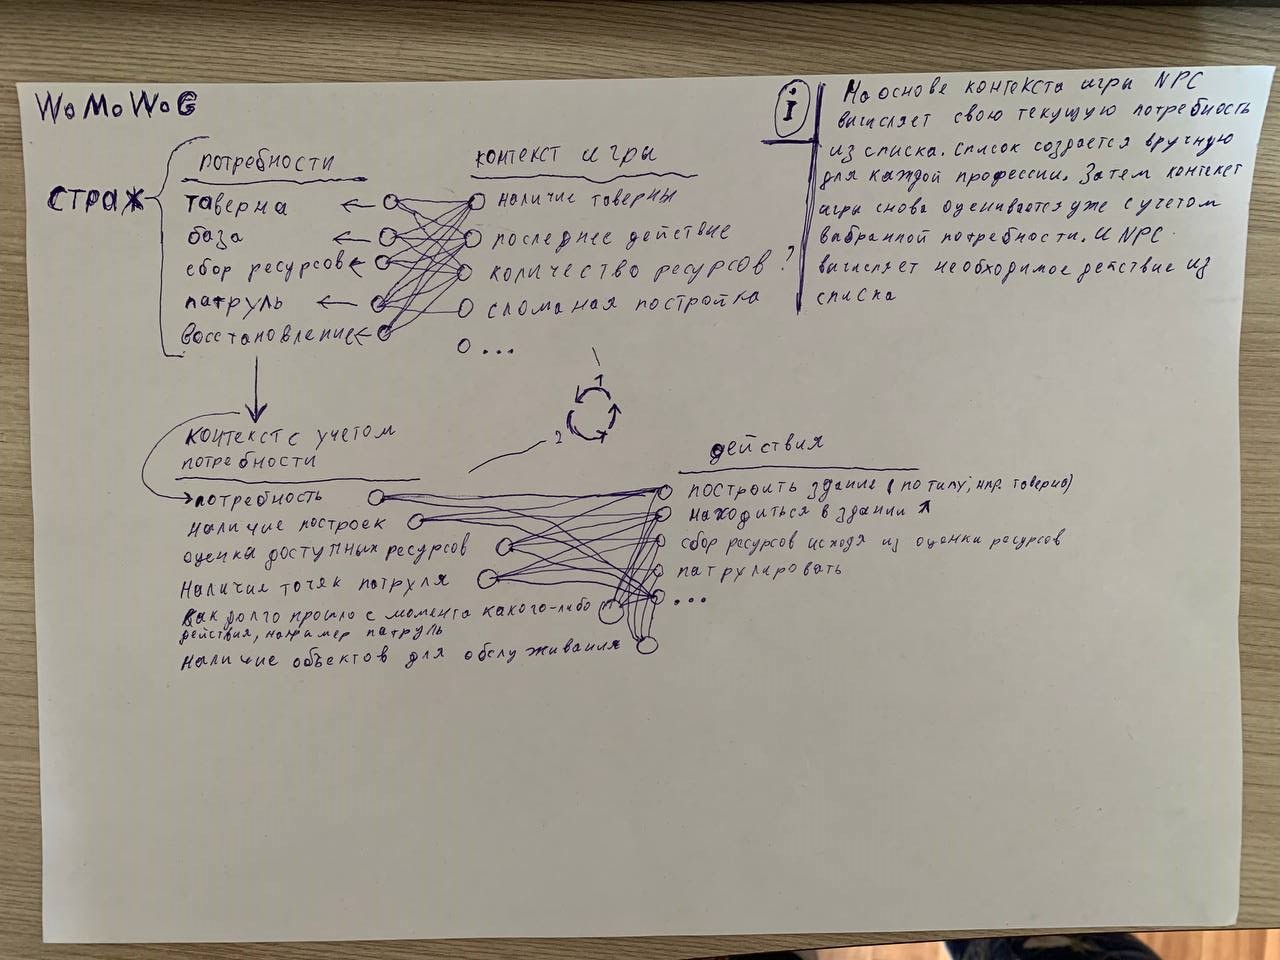 WoMoWoG
i
На основе контекста игры NPC
вычисляет свою текущую потребность
из списка. Список создается вручную
для каждой профессии. Затем контекст
игры снова оценивается уже с учетом
выбранной потребности. И NPC
вычисляет необходимое действие из
списка
страж
потребности
таверна
база
сбор ресурсов
патруль
восстановление
контекст игры
наличие таверны
последнее действие
количество ресурсов ?
сломаная постройка
...
1
2
контекст с учетом
потребности
потребность
наличие построек
оценка доступных ресурсов
наличие точек патруля
как долго прошло с момента какого-либо
действия, например патруль
наличие объектов для обслуживания
действия
построить здание (по типу, нпр. таверна)
находиться в здании
сбор ресурсов исходя из оценки ресурсов
патрулировать
...